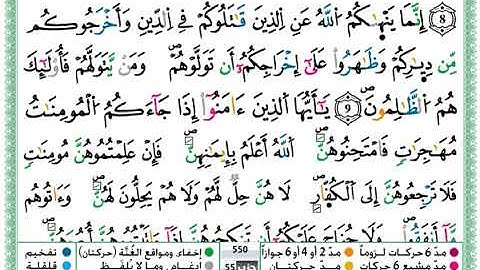 8 إِنَّمَا يَنْهَىٰكُمُ اللَّهُ عَنِ الَّذِينَ قَٰتَلُوكُمْ فِي الدِّينِ وَأَخْرَجُوكُم
مِّن دِيَٰرِكُمْ وَظَٰهَرُواْ عَلَىٰٓ إِخْرَاجِكُمُۥٓ أَن تَوَلَّوْهُمْۖ وَمَنْ يَّتَوَلَّهُمْ فَأُوْلَٰٓئِكَ
هُمُ الظَّٰلِمُونَۖ 9 يَٰٓأَيُّهَا الَّذِينَ ءَامَنُوٓاْ إِذَا جَآءَكُمُ الْمُومِنَٰتُ
مُهَٰجِرَٰتٍ فَامْتَحِنُوهُنَّۖ اللَّهُ أَعْلَمُ بِإِيمَٰنِهِنَّۖ فَإِنْ عَلِمْتُمُوهُنَّ مُومِنَٰتٍ
فَلَا تَرْجِعُوهُنَّ إِلَى الْكُفَّارِۖ لَا هُنَّ حِلٌّ لَّهُمْ وَلَا هُمْ يَحِلُّونَ لَهُنَّۖ وَءَاتُوهُم
مَّآ أَنفَقُواْۖ وَلَا جُنَاحَ عَلَيْكُمُۥٓ أَن تَنكِحُوهُنَّ إِذَآ ءَاتَيْتُمُوهُنَّ
مدّ 6 حركات لزوماً مدّ 2 أو 4 أو 6 جوازاً 550 إخفاء، ومواقع الغُنَّة (حركتان) تفخيم
مدّ مشبع 6 حركات مدّ حركتان إدغام، وما لا يُلفَظ قلقلة